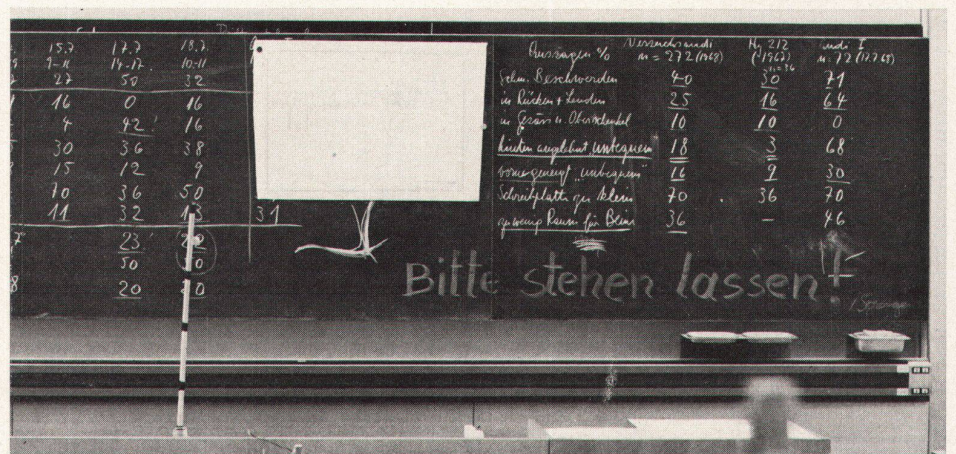 15.7. 17.7. 18.7.
9-11 14-17. 10-11
27 50 32
16 0 16
4 42! 16
30 36 38
15 12 9
70 36 50
11 32 13 31
23!
50 50
8 20 20
Aussagen %
n = 272 (1968) (1967) n. 72 (17.7.68)
n = 36
Beschwerden 40 30 71
in Rücken + Lenden 25 16 64
in Gesäss u. Oberschenkel 10 10 0
hinten angelehnt „unbequem" 18 3 68
vorne geneigt „unbequem" 16 9 30
Schreibplatte zu klein 70 36 70
zu wenig Raum für Beine 36 – 46
Bitte stehen lassen!